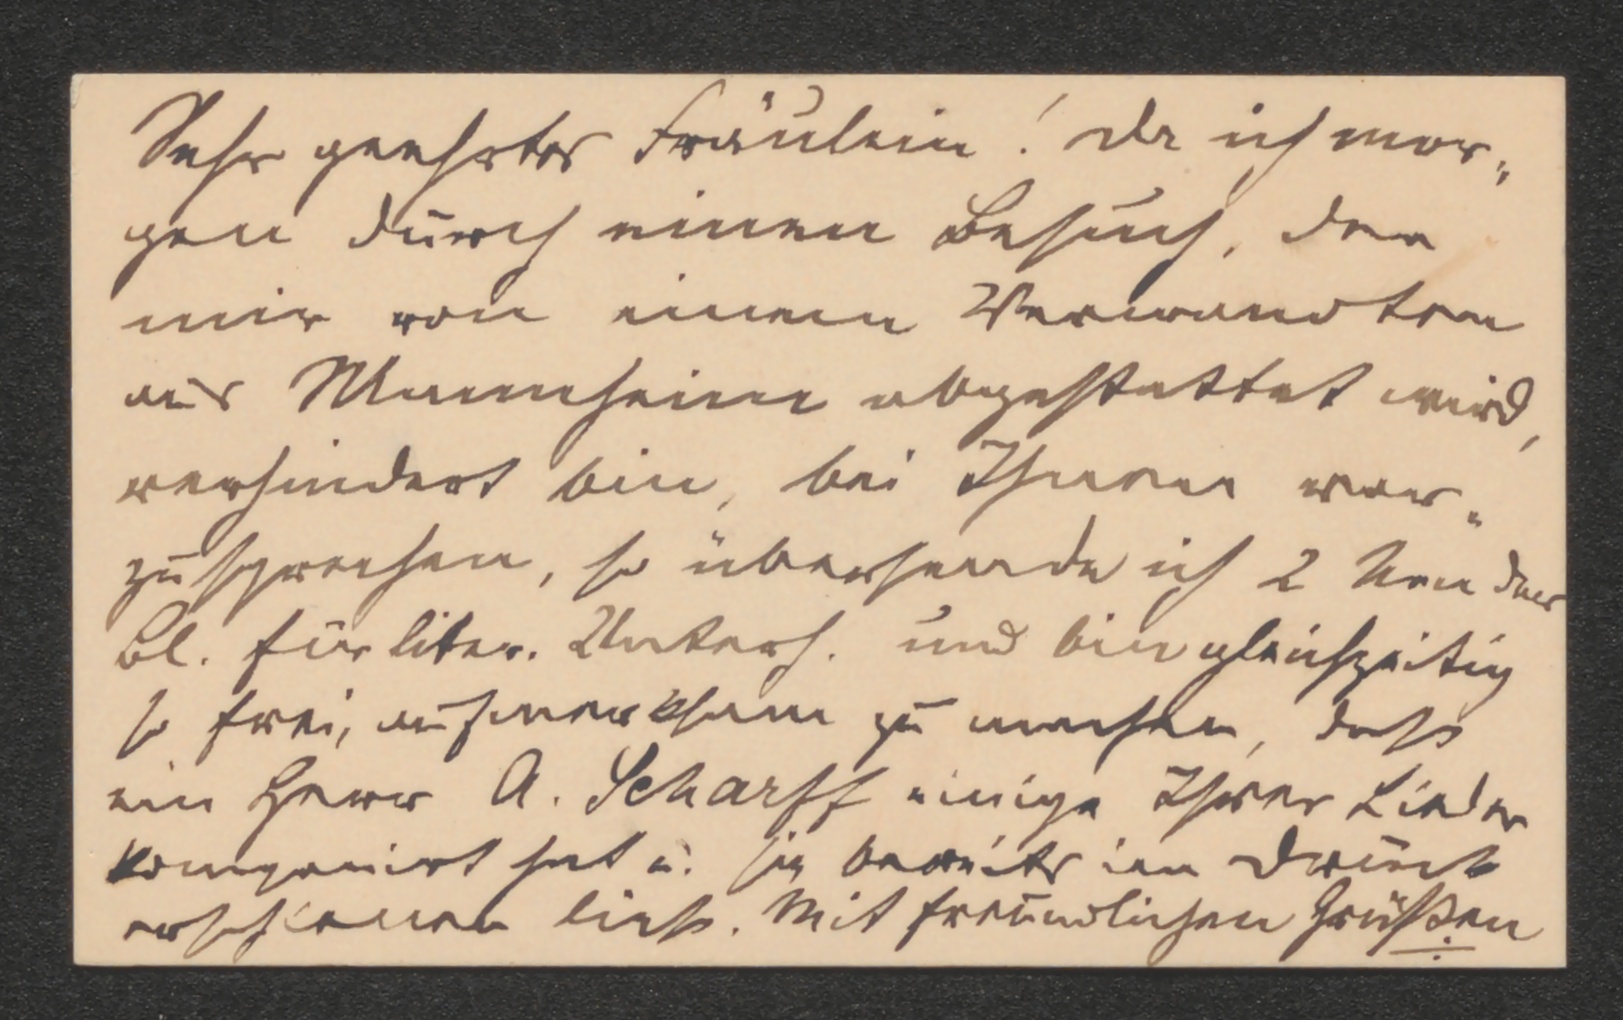 Sehr geehrtes Fräulein! Da ich mor-
gen durch einen Besuch, der
mir von einem Verwandten
aus Mannheim abgestattet wird,
verhindert bin, bei Ihnen vor-
zusprechen, so übersende ich 2 
Bl. für liter. Unterh. und bin gleichzeitig
so frei, aufmerksam zu machen, dass
ein Herr A. Scharff einige Ihrer Lieder
komponirt hat u. sie bereits im Druck
erscheinen liess. Mit freundlichen Grüßen